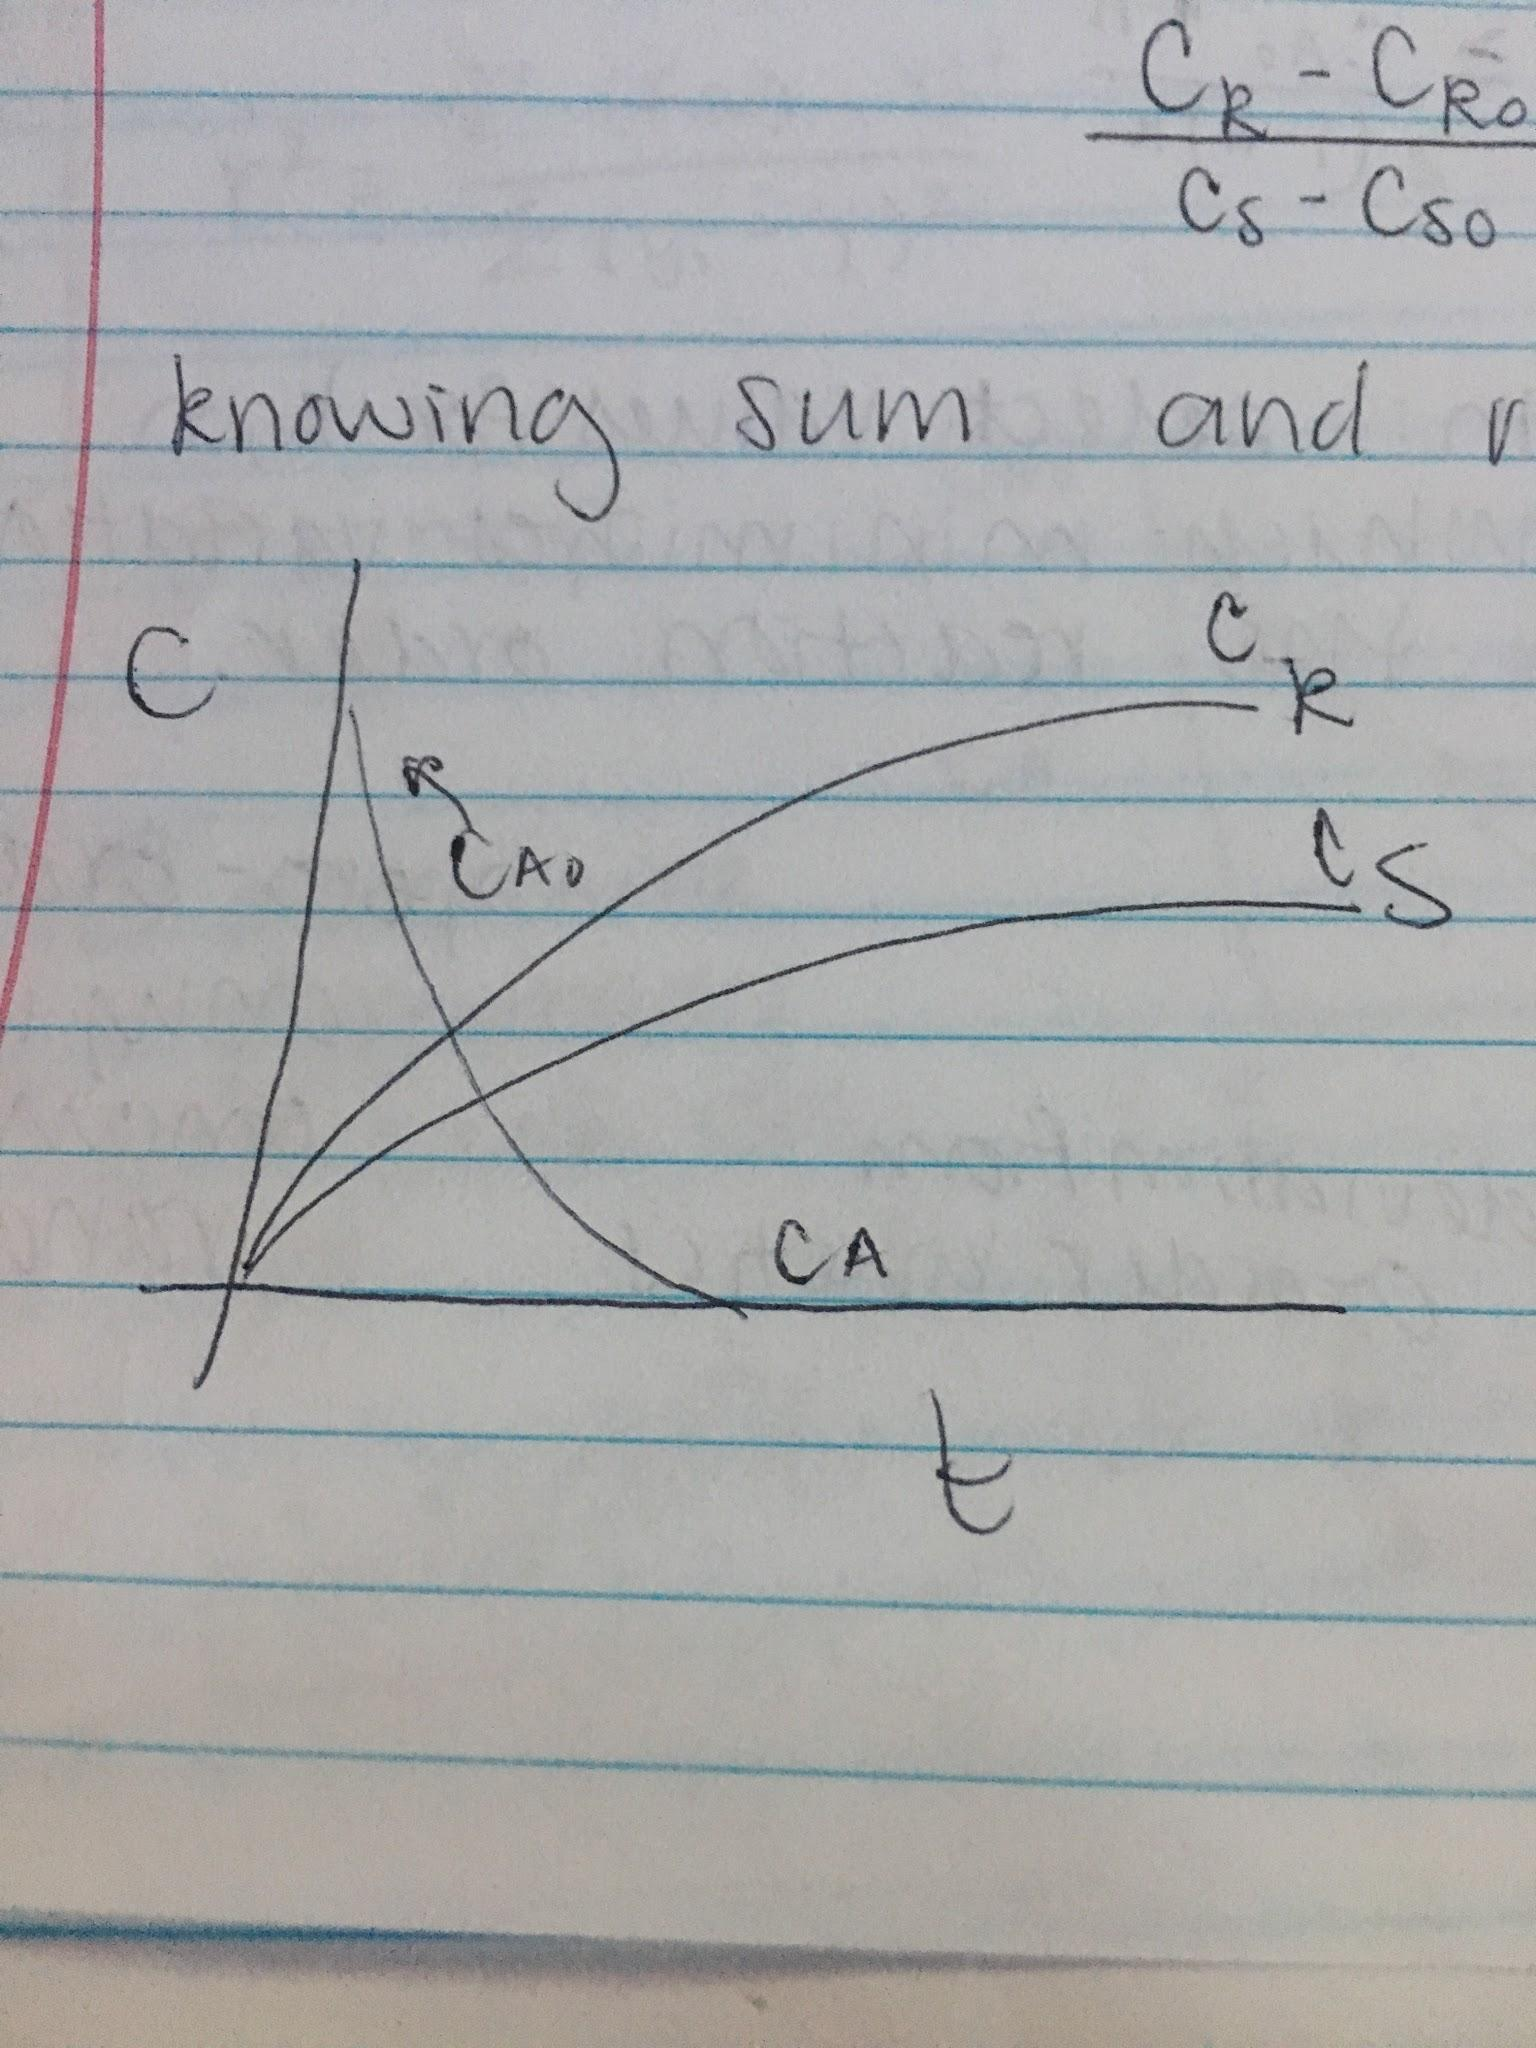 C_R - C_R0
C_S - C_S0
knowing sum and
C
C_R
C_A0
C_S
C_A
t